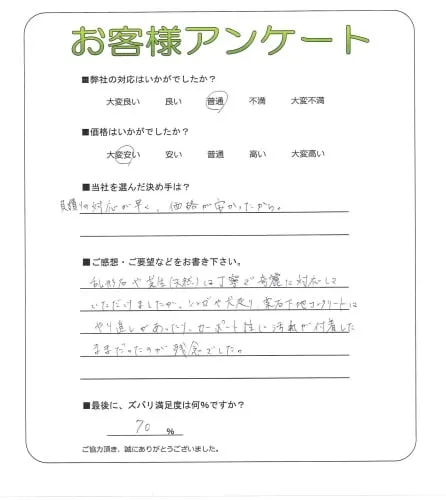 お客様アンケート
■弊社の対応はいかがでしたか？
大変良い 良い 普通 不満 大変不満
■価格はいかがでしたか？
大変安い 安い 普通 高い 大変高い
■当社を選んだ決め手は？
見積りの対応が早く、価格が安かったから。
■ご感想・ご要望などをお書き下さい。
乱形石や芝生(天然)は丁寧で綺麗に対応して
いただけましたが、レンガや犬走り、束石下地コンクリートは
やり直しがあったり、カーポート柱に汚れが付着した
ままだったのが残念でした。
■最後に、ズバリ満足度は何%ですか？
70 %
ご協力頂き，誠にありがとうございました。